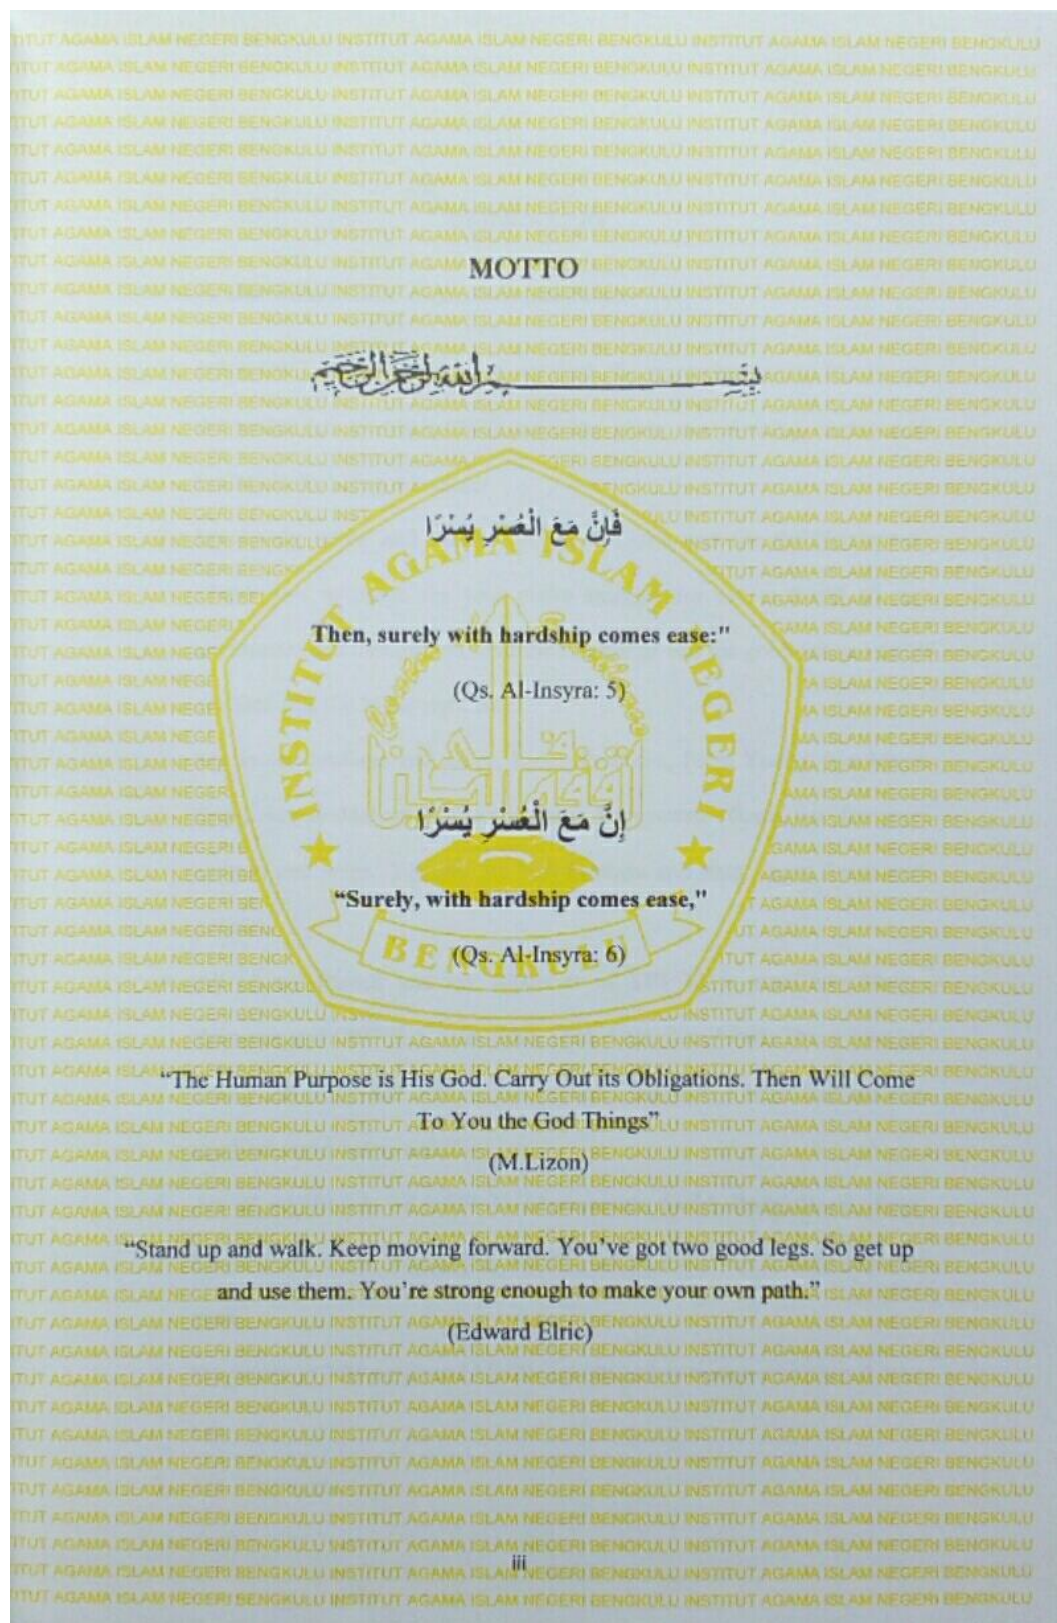 MOTTO
بِسْمِ اللَّهِ الرَّحْمَٰنِ الرَّحِيمِ
فَاِنَّ مَعَ الْعُسْرِ يُسْرًا
Then, surely with hardship comes ease:"
(Qs. Al-Insyra: 5)
اِنَّ مَعَ الْعُسْرِ يُسْرًا
“Surely, with hardship comes ease,"
(Qs. Al-Insyra: 6)
“The Human Purpose is His God. Carry Out its Obligations. Then Will Come
To You the God Things”
(M.Lizon)
“Stand up and walk. Keep moving forward. You’ve got two good legs. So get up
and use them. You’re strong enough to make your own path.”
(Edward Elric)
iii
INSTITUT AGAMA ISLAM NEGERI
BENGKULU